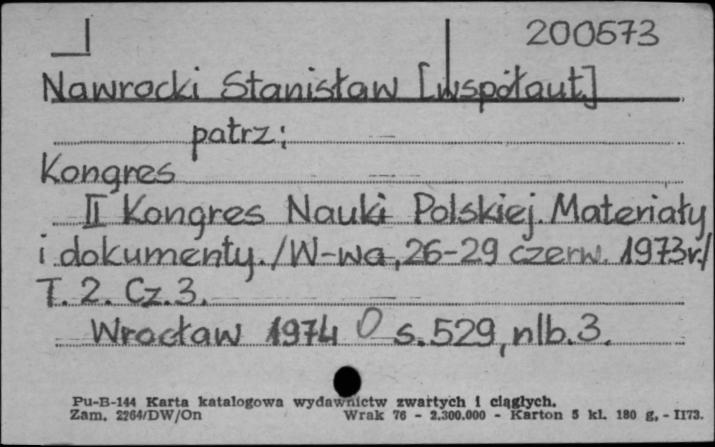 200573
Nawrocki Stanisław [współaut.]
patrz:
Kongres
II Kongres Nauki Polskiej. Materiały
i dokumenty. /W-wa, 26-29 czerw. 1973r./
T. 2. Cz. 3.
Wrocław 1974 O s. 529, nlb. 3.
Pu-B-144 Karta katalogowa wydawnictw zwartych i ciągłych.
Zam. 2264/DW/On Wrak 76 - 2.300.000 - Karton 5 kl. 180 g. - II73.